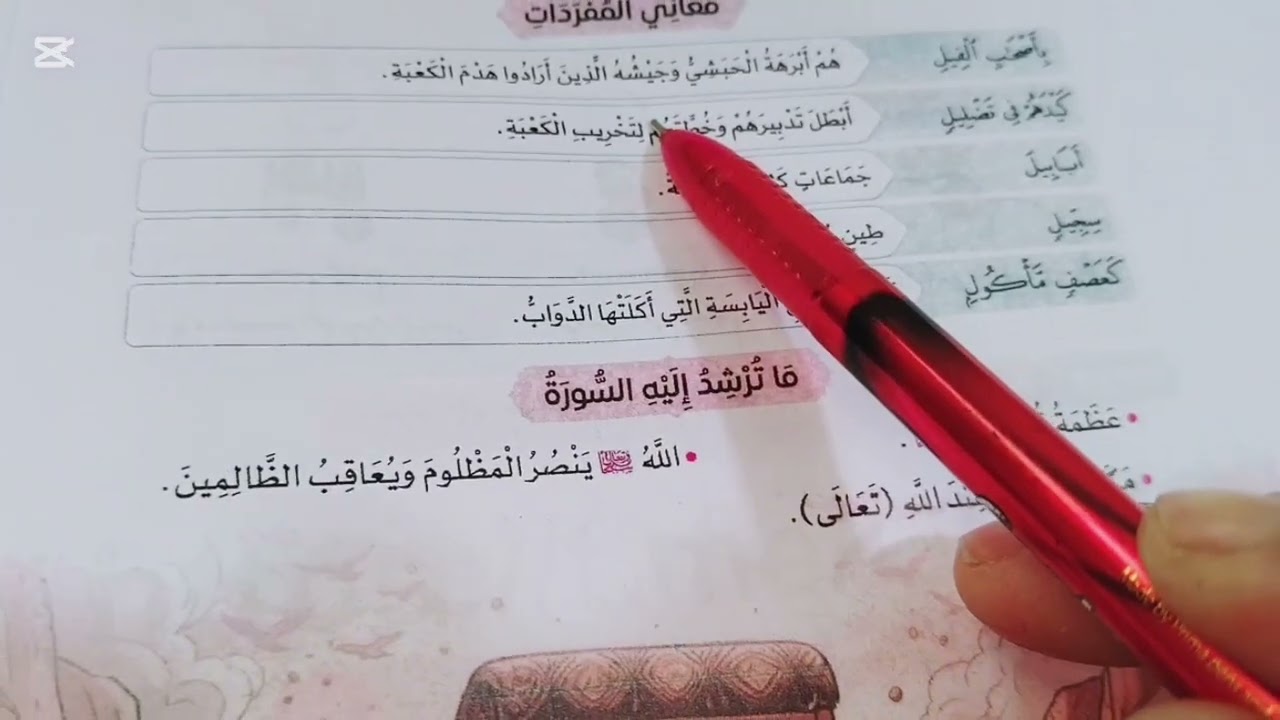 مَعَانِي الْمُفْرَدَاتِ
بِأَصْحَٰبِ ٱلْفِيلِ هُمْ أَبْرَهَةُ الْحَبَشِيُّ وَجَيْشُهُ الَّذِينَ أَرَادُوا هَدْمَ الْكَعْبَةِ.
كَيْدَهُمْ فِى تَضْلِيلٍ أَبْطَلَ تَدْبِيرَهُمْ وَخُطَّتَهُم لِتَخْرِيبِ الْكَعْبَةِ.
أَبَابِيلَ جَمَاعَاتٍ
سِجِّيلٍ طِينٍ
كَعَصْفٍ مَّأْكُولٍ الْيَابِسَةِ الَّتِي أَكَلَتْهَا الدَّوَابُّ.
مَا تُرْشِدُ إِلَيْهِ السُّورَةُ
• عَظَمَةُ
• اللَّهُ ﷻ يَنْصُرُ الْمَظْلُومَ وَيُعَاقِبُ الظَّالِمِينَ.
عِنْدَ اللَّهِ (تَعَالَى).